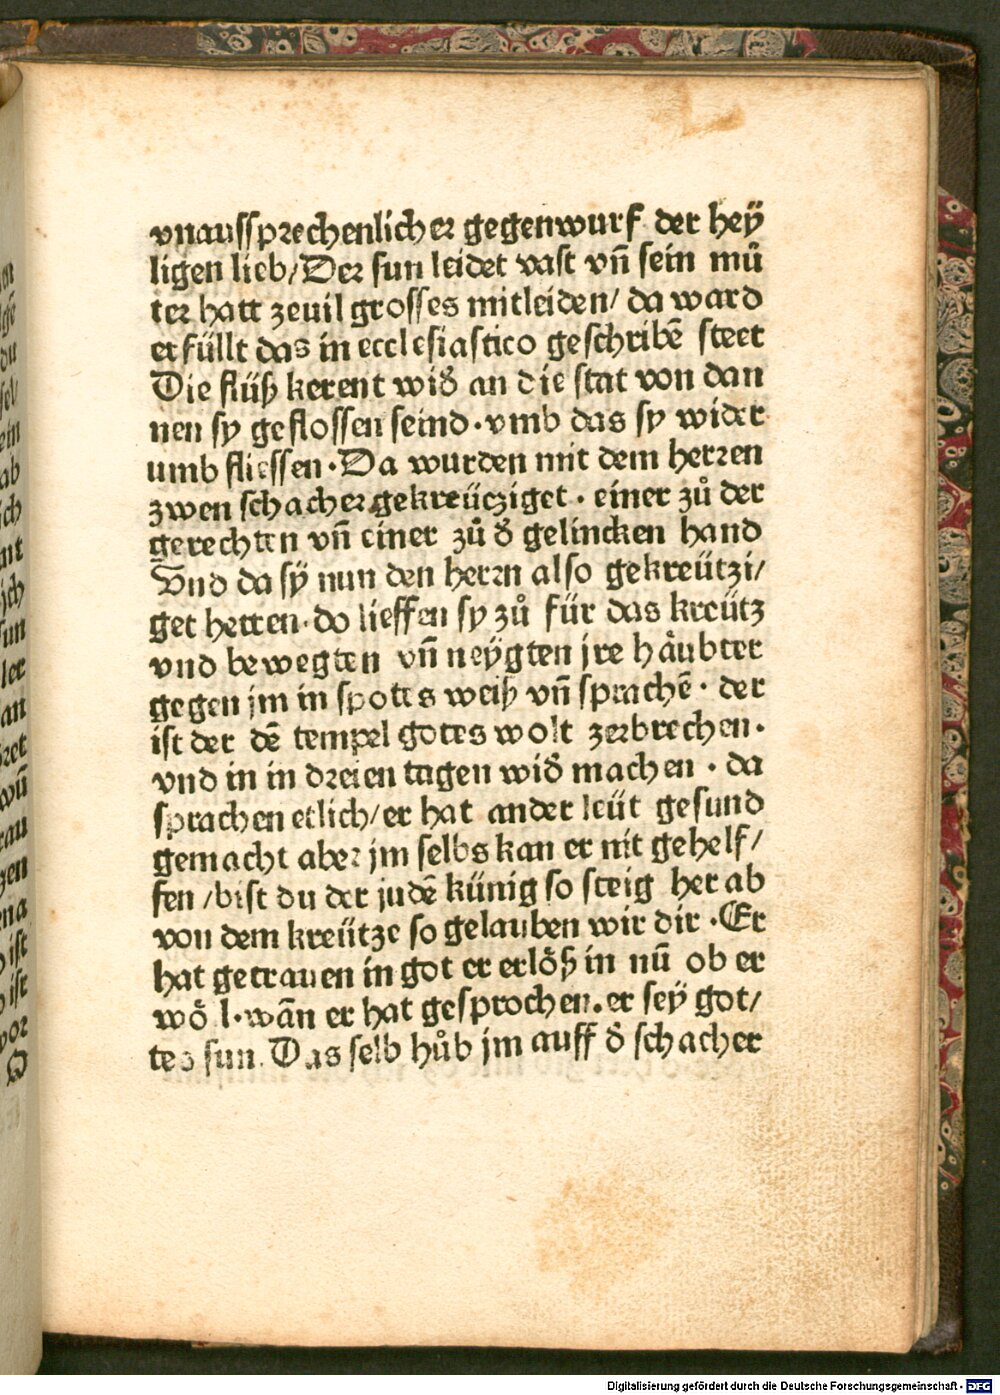 vnaussprechenlicher gegenwurf der hey
ligen lieb/Der sun leidet vast vñ sein mů
ter hatt zeuil grosses mitleiden/ da ward
erfüllt das in ecclesiastico geschribẽ steet
Die flüß kerent wid̕ an die stat von dan
nen sy geflossen seind·vmb das sy wider
umb fliessen·Da wurden mit dem herren
zwen schacher gekreücziget· einer zů der
gerechten vñ einer zů d̕ gelincken hand
Vnd da sÿ nun den herrn also gekreützi/
get hetten·do lieffen sy zů für das kreütz
vnd bewegten vñ neÿgten jre häubter
gegen jm in spottes weiß vñ sprachẽ· der
ist der dẽ tempel gotes wolt zerbrechen·
vnd in in dreien tagen wid̕ machen· da
sprachen etlich/er hat ander leüt gesund
gemacht aber jm selbs kan er nit gehelf/
fen/bist du der judẽ künig so steig her ab
von dem kreütze so gelauben wir dir·Er
hat getrauen in got er erlöß in nũ ob er
wöl·wañ er hat gesprochen.er seÿ got/
tes sun.Das selb hůb jm auff d̕ schacher
Digitalisierung gefördert durch die Deutsche Forschungsgemeinschaft - DFG